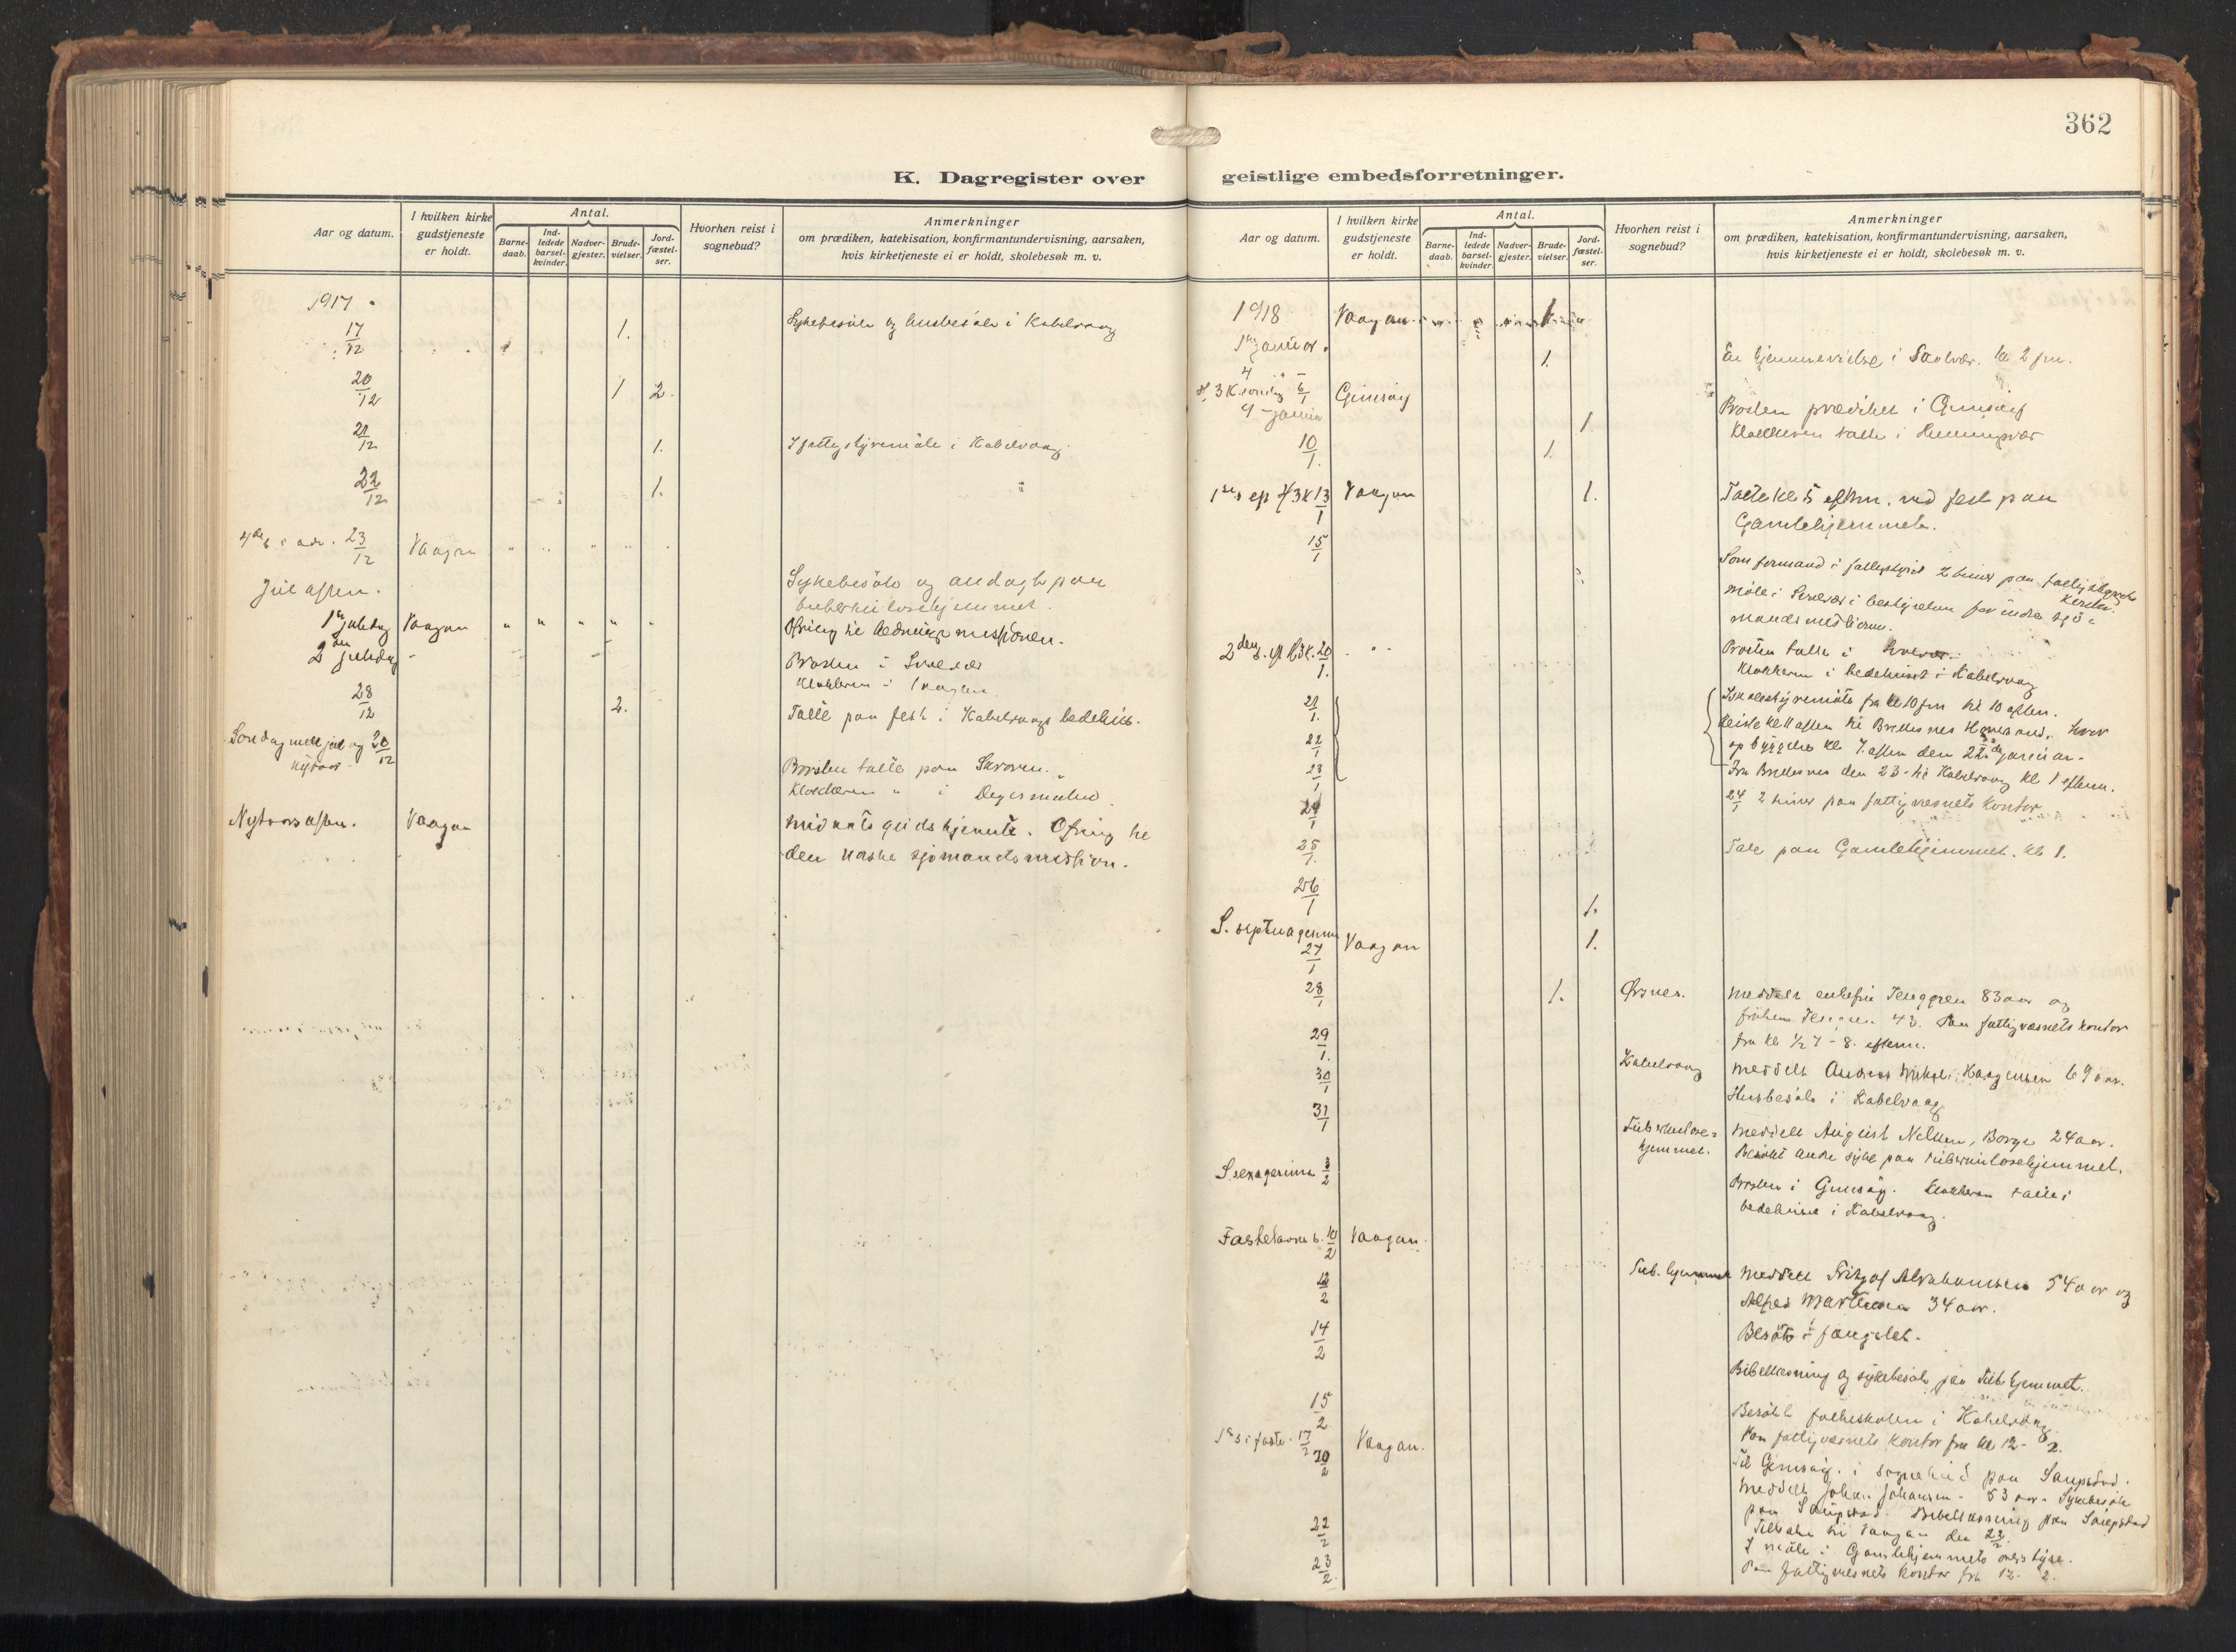 362
K. Dagregister over
Aar og datum.
I hvilken kirke
gudstjeneste
er holdt.
Antal.
Barne-
daab.
Ind-
ledede
barsel-
kvinder.
Nadver-
gjester.
Brude-
vielser.
Jord-
fæstel-
ser.
Hvorhen reist i
sognebud?
Anmerkninger
om prædiken, katekisation, konfirmantundervisning, aarsaken,
hvis kirketjeneste ei er holdt, skolebesøk m. v.
1917
17/12 1. Sykebesök og husbesök i Kabelvaag
20/12 1 2.
21/12 1. I fattigstyremöte i Kabelvaag
22/12 1.
4de s. i adv. 23/12 Vaagan " " " " "
Juleaften. Sykebesök og andagt paa
tuberkulosehjemmet.
1ste juledag Vaagan " " " " " Ofring til hedningemissionen.
2den juledag - Prosten i Svolvær
Klokkeren i Vaagan
28/12 2. Talte paa fest i Kabelvaags bedehus.
Söndag mell. jul og 30/12
nytaar Prosten talte paa Skroven.
Klokkeren " i Digermulen.
Nytaarsaften. Vaagan Midnatsgudstjeneste. Ofring til
den norske sjømandsmission.
geistlige embedsforretninger.
Aar og datum.
I hvilken kirke
gudstjeneste
er holdt.
Antal.
Barne-
daab.
Ind-
ledede
barsel-
kvinder.
Nadver-
gjester.
Brude-
vielser.
Jord-
fæstel-
ser.
Hvorhen reist i
sognebud?
Anmerkninger
om prædiken, katekisation, konfirmantundervisning, aarsaken,
hvis kirketjeneste ei er holdt, skolebesøk m. v.
1918 Vaagan
1ste januar.
4 - 1. En hjemmevielse i Svolvær. kl 2 fm.
H. 3 K. söndag 6/1 Gimsöy
Prosten prædiket i Gimsöy
9 - januar 1 Klokkeren talte i Henningsvær
10/1. 1.
1ste s. ep. H3K 13/1 Vaagan 1. Talte kl 5 efthm. ved fest paa
Gamlehjemmet.
15/1
Som formand i fattigstyret 2 timer paa fattigstyrets
kontor.
Möte i Svolvær i bestyrelsen for indre sjö-
mandsmissionen.
2den s. ep. H3K. 20/1. " Prosten talte i Svolvær.
Klokkeren i bedehuset i Kabelvaag
21/1. Skolestyremöte fra kl 10 fm til 10 aften.
22/1 Reiste kl 11 aften til Brettesnes
opbyggelse kl 7 aften den 22de januar.
23/1 Fra Brettesnes den 23- til Kabelvaag kl 1 efterm.
24/1 24/1 2 timer paa fattigvæsnets kontor
25/1. Tale paa Gamlehjemmet. kl 1.
26/1 1.
S. septuagesima 27/1 Vaagan 1.
28/1 1. Ørsnes. Meddelt enkefru Tenggren 83 aar og
fröken Tenggren 43. Paa fattigvæsnets kontor
29/1. fra kl ½7 - 8. efterm.
30/1 Kabelvaag Meddelt Andreas Haagensen 69 aar.
31/1 Husbesök i Kabelvaag
Tuberkulose-
hjemmet. Meddelt August Nilsen, Borge 24 aar.
Besökt andre syke paa tuberkulosehjemmet.
S. sexagesima 3/2 Prosten i Gimsöy. Klokkeren talte i
bedehuset i Kabelvaag.
Fastelavns s. 10/2 Vaagan.
12/2 Tub. hjemmet Meddelt Fritjof Abrahamsen 54 aar og
Alfred Martinsen 34 aar.
14/2 Besök i fængslet.
Bibellæsning og sykebesök paa Tub hjemmet.
15/2 Besökt folkeskolen i Kabelvaag.
Paa fattigvæsnets kontor fra kl 12 - 2.
1ste s. i faste 17/2 Vaagan.
20/2 Til Gimsöy. i sognebud paa Saupstad.
Meddelt Johan Johansen - 83 aar. Sykebesök
paa Saupstad. Bibellæsning paa Saupstad
22/2 Tilbake til Vaagan den 22/2.
I möte i Gamlehjemmets
23/2. Paa fattigvæsnets kontor fra 12 - 2.